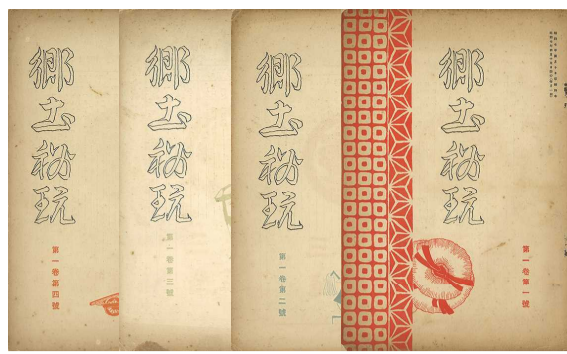 郷土秘玩
第一卷第一號
郷土秘玩
第一卷第二號
郷土秘玩
第一卷第三號
郷土秘玩
第一卷第四號